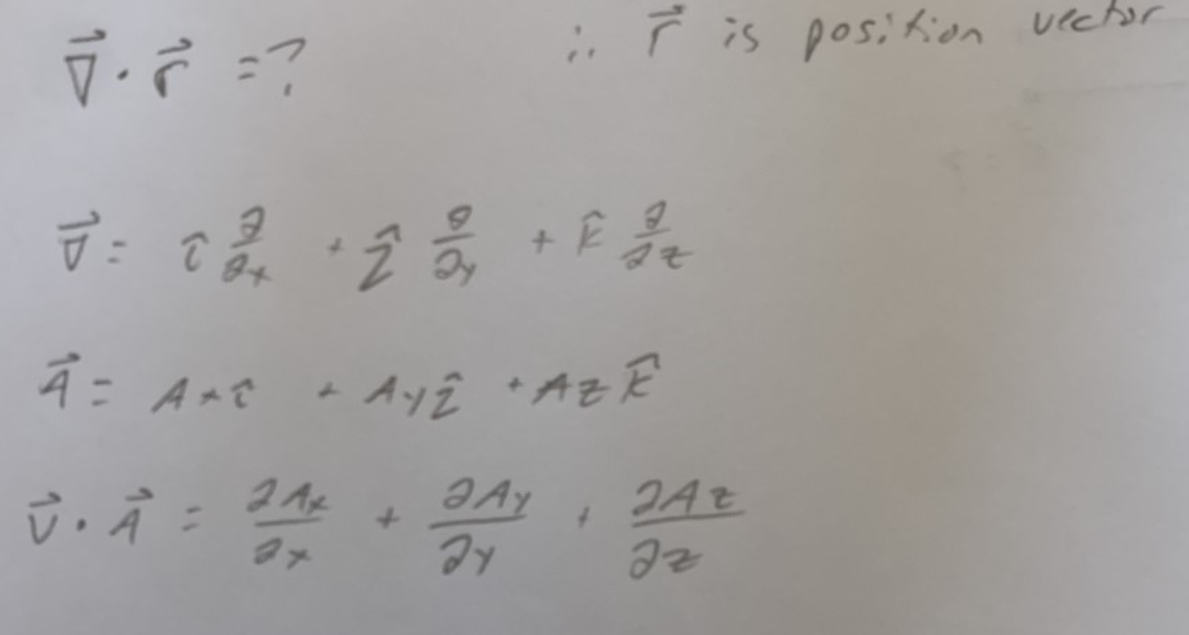 ∇⃗ · r⃗ = ? ∴ r⃗ is position vector
∇⃗ = î ∂/∂x + ĵ ∂/∂y + k̂ ∂/∂z
A⃗ = Axî + Ayĵ + Azk̂
∇⃗ · A⃗ = ∂Ax/∂x + ∂Ay/∂y + ∂Az/∂z